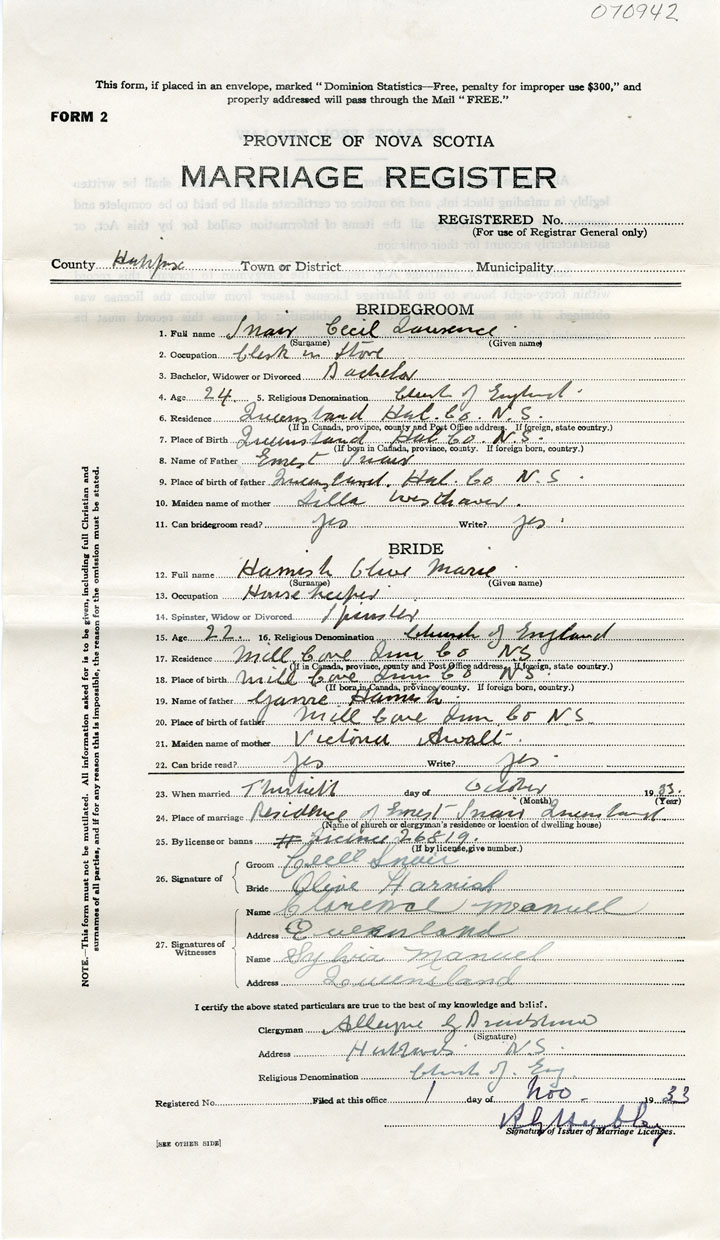 070942
This form, if placed in an envelope, marked "Dominion Statistics—Free, penalty for improper use $300," and
properly addressed will pass through the Mail "FREE."
FORM 2
PROVINCE OF NOVA SCOTIA
MARRIAGE REGISTER
REGISTERED No.
(For use of Registrar General only)
County Halifax Town or District Municipality
BRIDEGROOM
1. Full name Snair Cecil Laurence
(Surname) (Given name)
2. Occupation Clerk in Store
3. Bachelor, Widower or Divorced Bachelor
4. Age 24. 5. Religious Denomination Church of England.
6. Residence Queensland Hal. Co. N.S.
(If in Canada, province, county and Post Office address. If foreign, state country.)
7. Place of Birth Queensland Hal. Co. N.S.
(If born in Canada, province, county. If foreign born, country.)
8. Name of Father Ernest Snair
9. Place of birth of father Queensland. Hal. Co N.S.
10. Maiden name of mother Westhaver.
11. Can bridegroom read? yes Write? yes.
BRIDE
12. Full name Harnish Olive Marie
(Surname) (Given name)
13. Occupation Housekeeper
14. Spinster, Widow or Divorced Spinster
15. Age 22. 16. Religious Denomination Church of England
17. Residence Mill Cove Lun Co N.S.
(If in Canada, province, county and Post Office address. If foreign, state country.)
18. Place of birth Mill Cove Lun Co N.S.
(If born in Canada, province/county. If foreign born, country.)
19. Name of father Harnish.
20. Place of birth of father Mill Cove Lun Co N.S.
21. Maiden name of mother Victoria Awalt.
22. Can bride read? yes Write? yes.
23. When married Thirtieth day of October 1933.
(Month) (Year)
24. Place of marriage Residence of Ernest Snair Queensland
(Name of church or clergyman's residence or location of dwelling house)
25. By license or banns # license 26819.
(If by license, give number.)
26. Signature of
Groom Cecil Snair
Bride Olive Harnish
27. Signatures of
Witnesses
Name Clarence Manuel
Address Queensland
Name Sylvia Manuel
Address Queensland
I certify the above stated particulars are true to the best of my knowledge and belief.
Clergyman
(Signature)
Address Hubbards N.S.
Religious Denomination Church of Eng.
Registered No. Filed at this office 1 day of Nov. 1933
Signature of Issuer of Marriage Licenses.
[SEE OTHER SIDE]
NOTE.—This form must not be mutilated. All information asked for is to be given, including full Christian and
surnames of all parties, and if for any reason this is impossible, the reason for the omission must be stated.